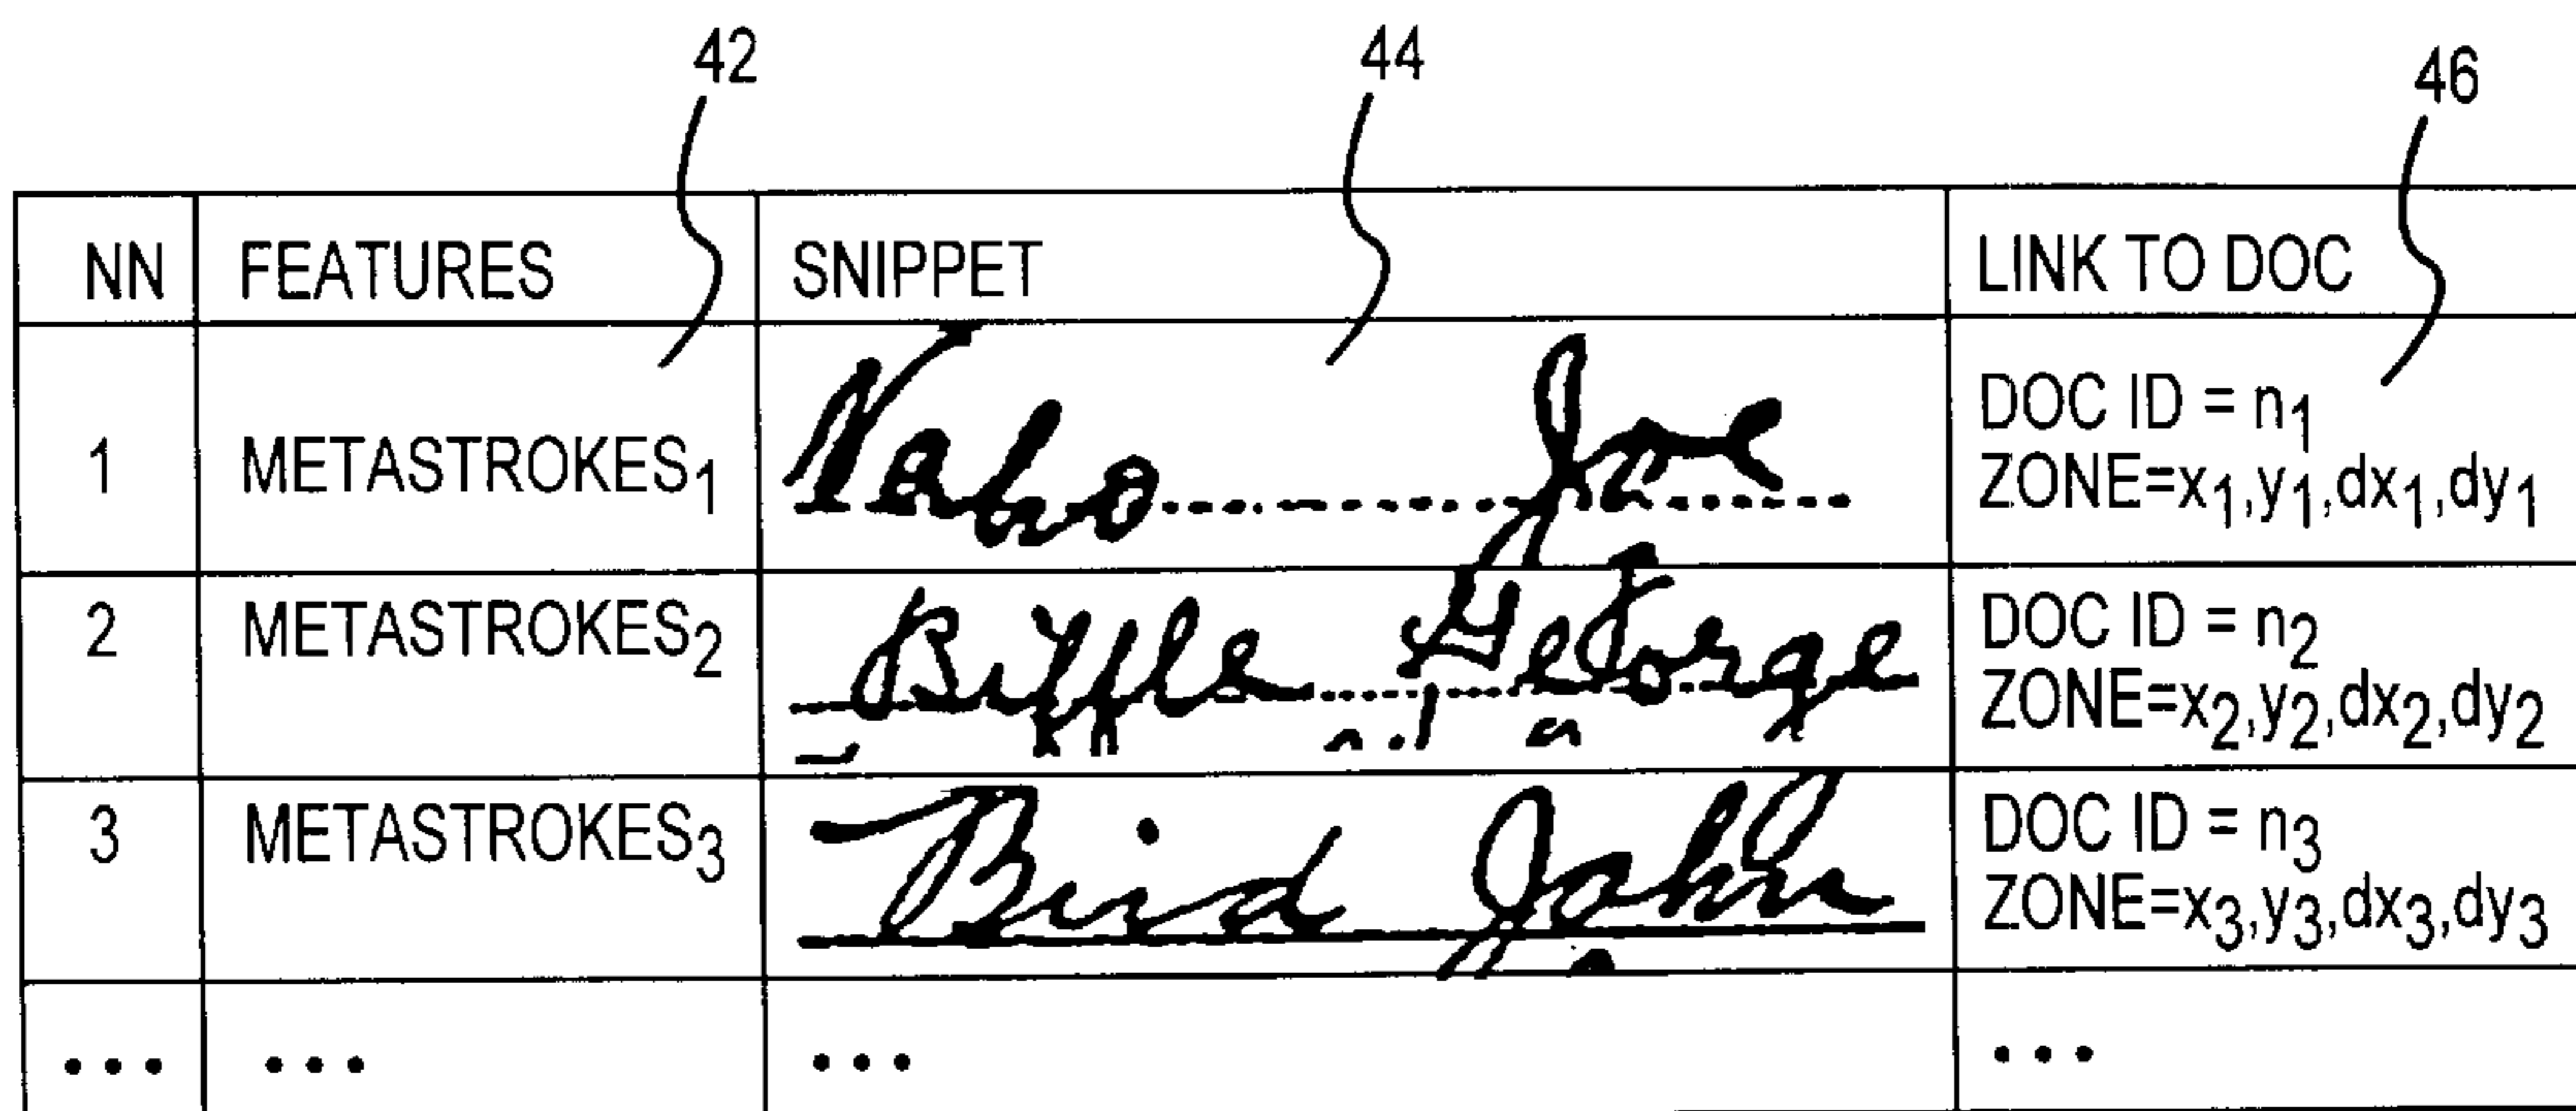 42 44 46
NN FEATURES SNIPPET LINK TO DOC
DOC ID = n1
1 METASTROKES1 Nabo Joe
ZONE=x1,y1,dx1,dy1
2 METASTROKES2 Biffle George DOC ID = n2
ZONE=x2,y2,dx2,dy2
3 METASTROKES3 Bird John DOC ID = n3
ZONE=x3,y3,dx3,dy3
... ... ... ...